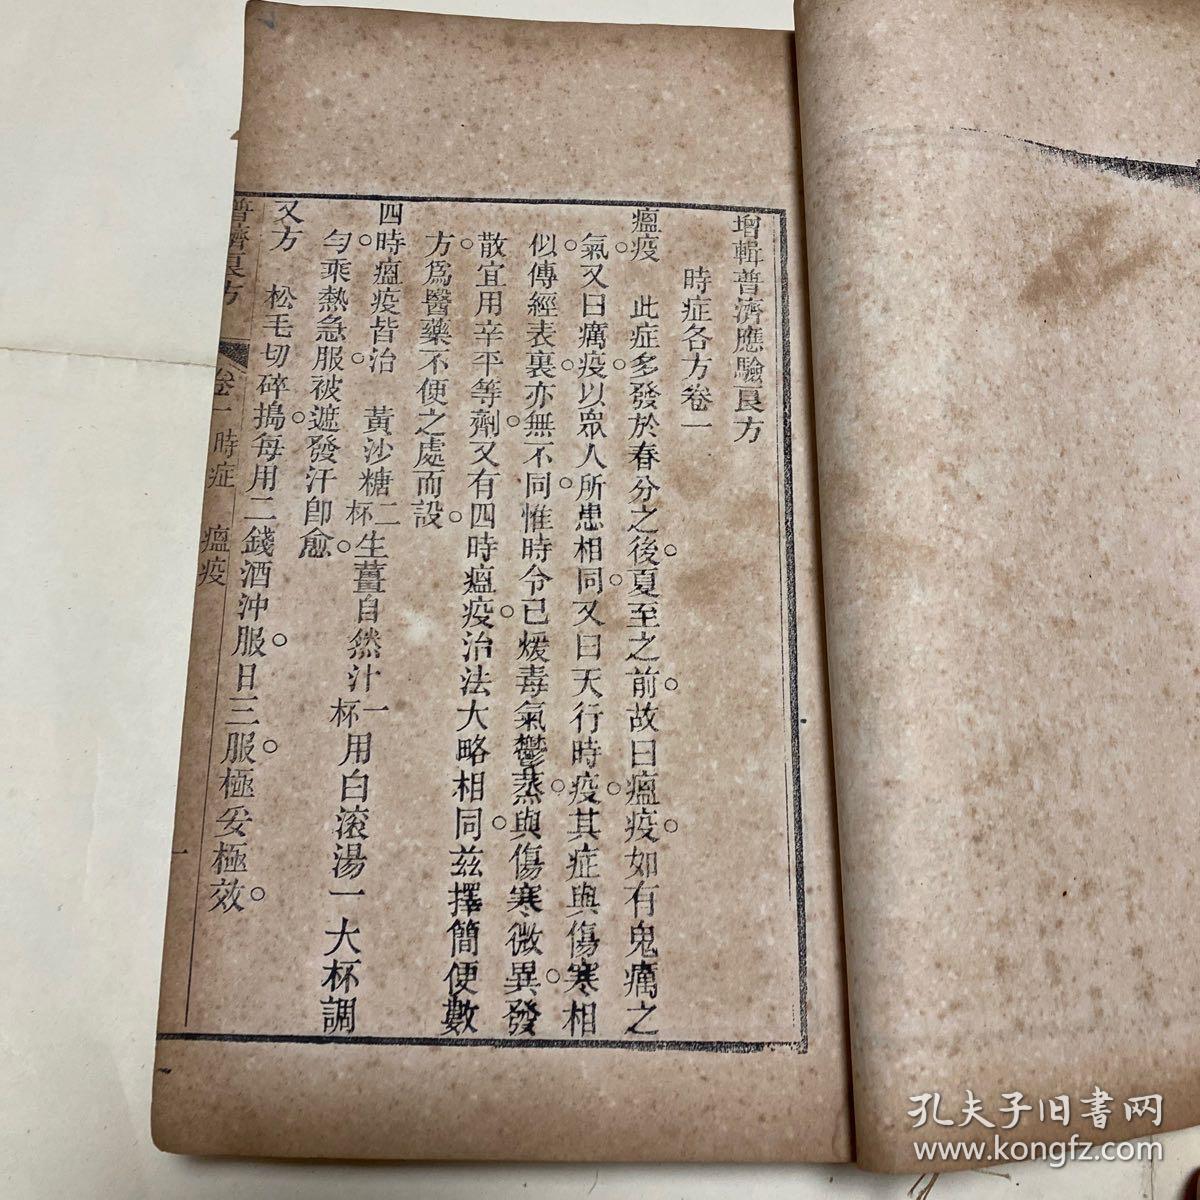 增輯普濟應驗良方
時症各方卷一
瘟疫　此症多發於春分之後。夏至之前。故曰瘟疫。如有鬼癘之
氣。又曰癘疫。以眾人所患相同。又曰天行時疫。其症與傷寒相
似。傳經表裏。亦無不同。惟時令已煖。毒氣鬱蒸。與傷寒微異。發
散宜用辛平等劑。又有四時瘟疫。治法大略相同。茲擇簡便數
方。為醫藥不便之處而設。
四時瘟疫皆治。　黃沙糖二杯生薑自然汁一杯用白滾湯一大杯調
勻。乘熱急服。被遮發汗。即愈
又方　松毛切碎搗。每用二錢。酒沖服。日三服。極妥極效。
普濟良方　卷一　時症　瘟疫　一
孔夫子旧書网
www.kongfz.com